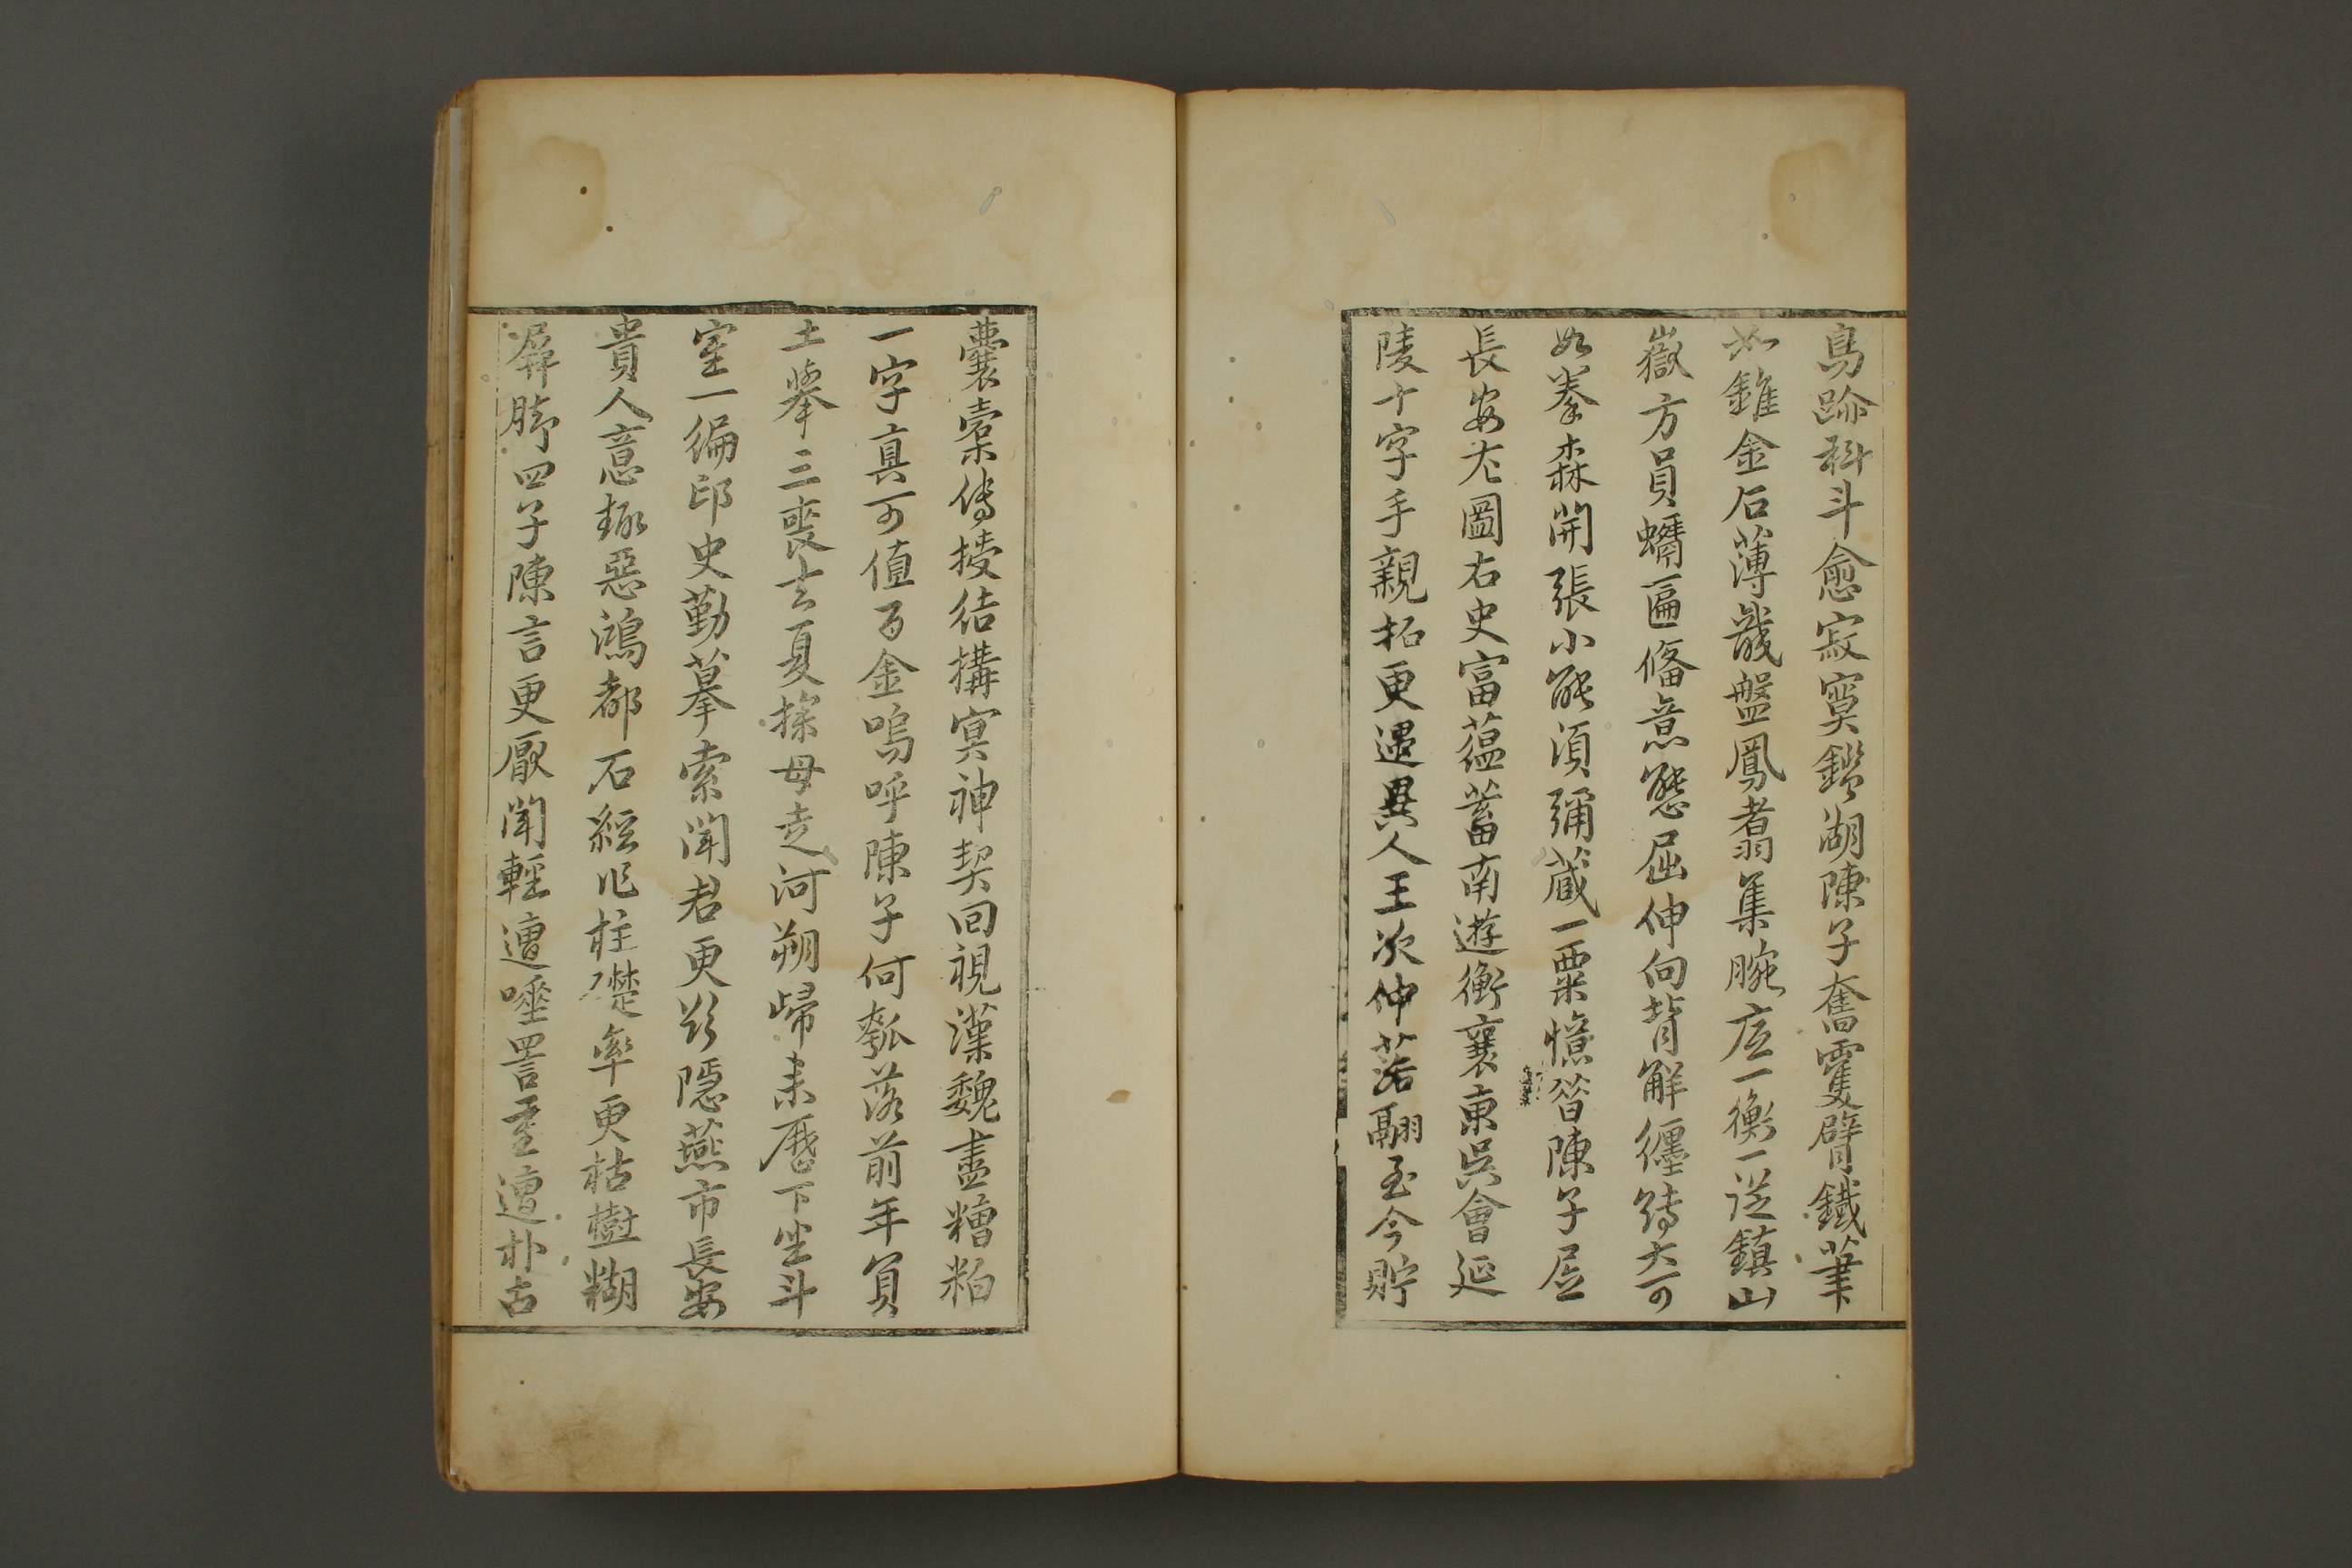 鳥跡科斗愈寂寞鑑湖陳子奮雙臂鐵筆
如錐金石薄龍盤鳳翥集腕底一衡一從鎮山
嶽方員蟠匾俻意態屈伸向背解纏縛大可
如拳森開張小能須彌蔵一粟憶昔陳子居
長安左圖右史富蘊蓄南遊衡襄東吳會延
陵十字手親拓更遇異人王次仲落翮至今貯
囊橐傳授结搆冥神契回視漢魏盡糟粕
一字真可值百金嗚呼陳子何瓠落前年負
土舉三喪去夏探母走河朔歸来歴下坐斗
室一編印史勤摹索聞君更欲隱燕市長安
貴人意輙惡鴻都石經作柱礎牽更枯樹糊
屏脚四子陳言更厭聞輕遭唾詈重遭扑古